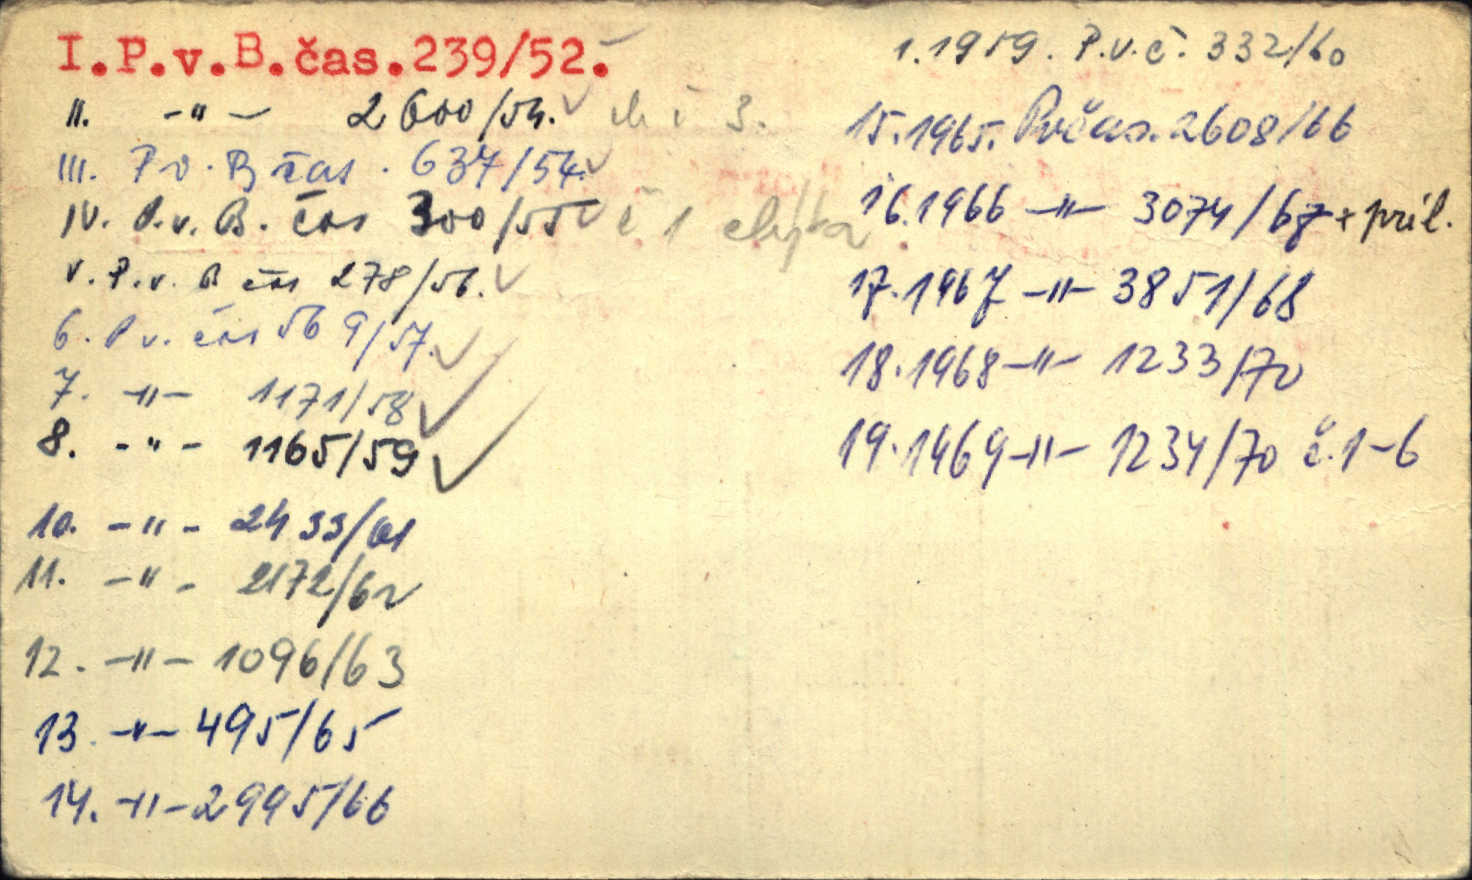 I.P.v.B.čas.239/52.
II. -"- 2600/54. ch č 3.
III. P v. B čas. 637/54.
IV. P.v. B. čas 300/55 č 1 chýba
V. P.v. B čas 278/56.
6. P v. čas 569/57.
7. -"- 1171/58
8. -"- 1165/59
10. -"- 2433/61
11. -"- 2172/62
12. -"- 1096/63
13. -"- 495/65
14. -"- 2995/66
1.1959. P.v.č. 332/60
15.1965. Pvčas. 2608/66
16.1966 -"- 3074/67 + príl.
17.1967 -"- 3851/68
18.1968 -"- 1233/70
19.1969 -"- 1234/70 č.1-6